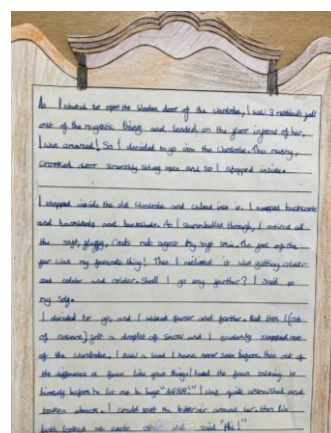 As I started to open the wooden door of the wardrobe, I saw 3 mothballs fall
out of the mystic thing and landed on the floor infront of her.
I was amazed! So I decided to go into the wardrobe. The rusty,
crooked door smoothly slung open and so I stepped inside.
I stepped inside the old wardrobe and walked into it. I stepped backwards
and forwards and backwards. As I stumbled through, I noticed all
the soft, fluffy, coats rub against my soft skin. The feel of the
fur was my favourite thing! Then I noticed it was getting colder
and colder and colder. Shall I go any further? I said to
my self.
I decided to go, and I walked further and further. But then I (out
of nowhere) felt a droplet of snow and I suddenly stepped out
of the wardrobe. I saw a land I have never seen before. Then out of
the distance a faun like goat thing! I heard the faun talking to
himself before he let me a big "ARRR!" I was quite astonished and
taken aback. I could the around her. then We
both looked at each other and said "Hi!"